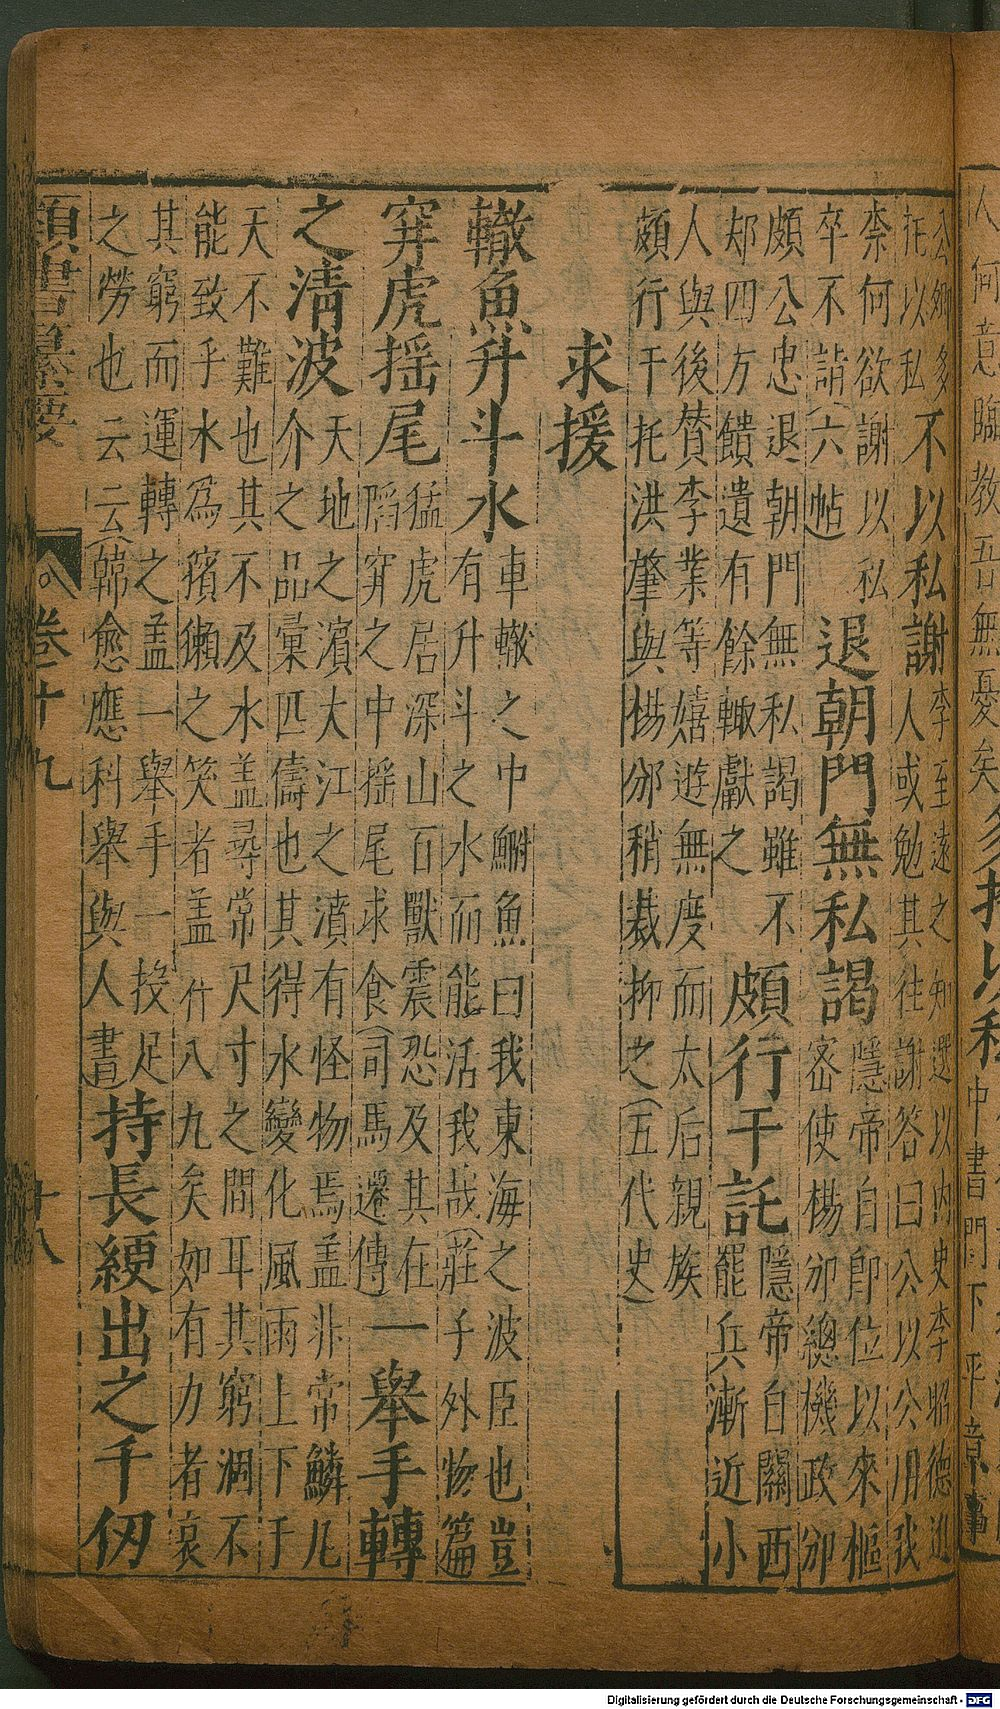 公卿多
托以私
不以私謝
李至遠之知選以内史李昭德進
人或勉其往謝答曰公以公用我
柰何欲謝以私
卒不詣(六帖
退朝門無私謁
隱帝自卽位以來樞
密使楊邠總機政邠
頗公忠退朝門無私謁雖不
却四方饋遺有餘輙獻之
頗行干託
隱帝自關西
罷兵漸近小
人與後賛李業等嬉遊無度而太后親族
頗行干托洪肇與楊邠稍裁抑之(五代史)
求援
轍魚升斗水
車轍之中鮒魚曰我東海之波臣也豈
有升斗之水而能活我哉(莊子外物篇
穽虎摇尾
猛虎居深山百獸震恐及其在
䧟穽之中摇尾求食(司馬遷傳
一舉手轉
之清波
天地之濵大江之濆有怪物焉盖非常鱗凡
介之品彚匹儔也其得水變化風雨上下于
天不難也其不及水盖尋常尺寸之間耳其窮涸不
能致乎水爲獱獺之笑者盖什八九矣如有力者哀
其窮而運轉之盖一舉手一投足
之勞也云云(韓愈應科舉與人書
持長綆出之千仞
類書纂要
卷十九
十八
人何意臨教吾無憂矣
多托以私
中書門下平章事
Digitalisierung gefördert durch die Deutsche Forschungsgemeinschaft - DFG